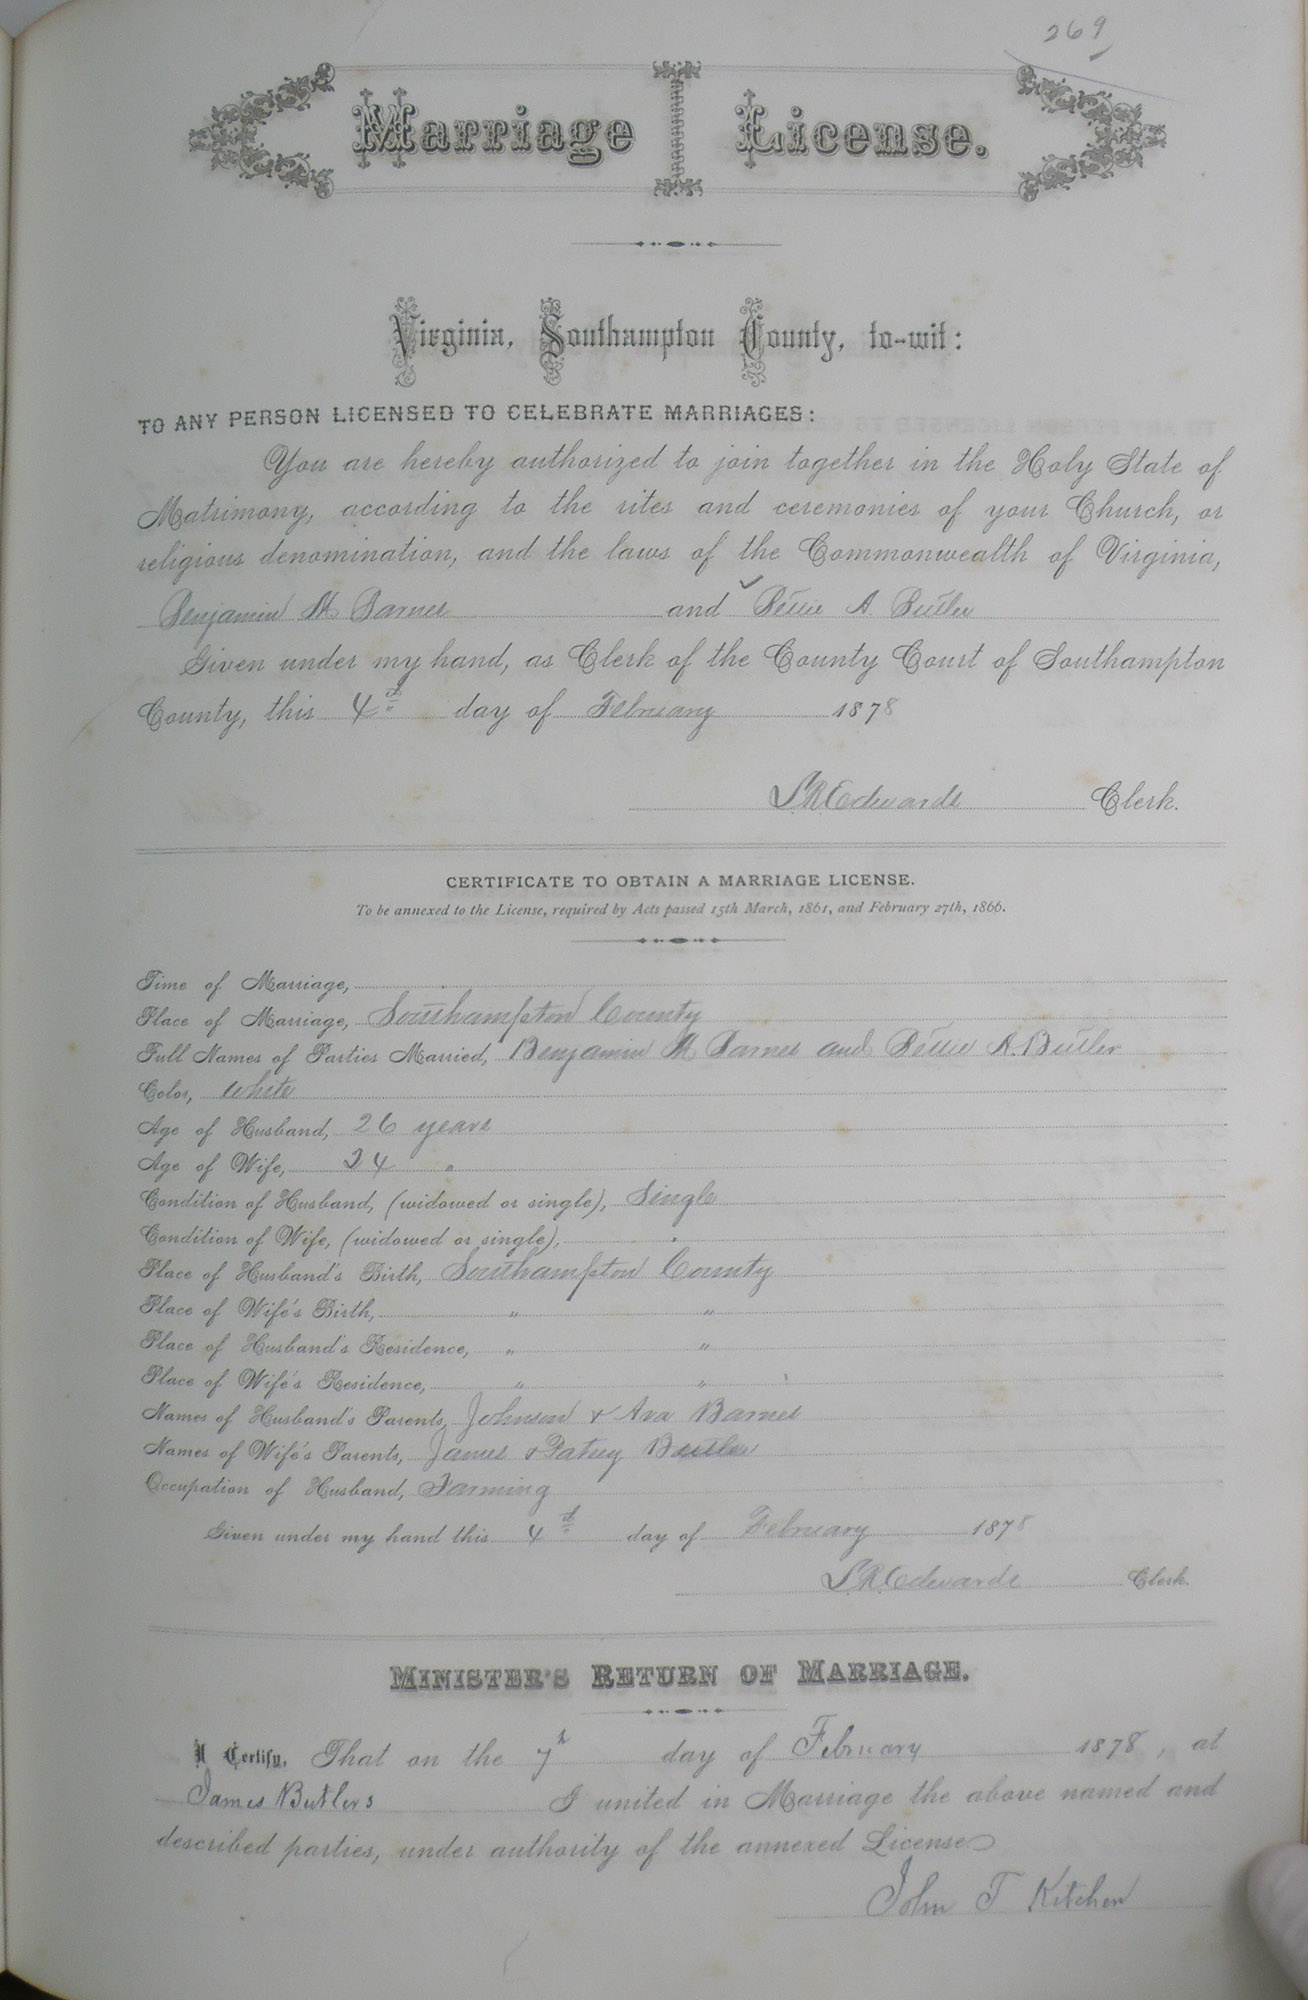 269
Marriage License.
Virginia, Southampton County, to-wit:
TO ANY PERSON LICENSED TO CELEBRATE MARRIAGES:
You are hereby authorized to join together in the Holy State of
Matrimony, according to the rites and ceremonies of your Church, or
religious denomination, and the laws of the Commonwealth of Virginia,
Benjamin H Barnes and Bettie A Butler
Given under my hand, as Clerk of the County Court of Southampton
County, this 4th day of February 1878
L R Edwards Clerk.
CERTIFICATE TO OBTAIN A MARRIAGE LICENSE.
To be annexed to the License, required by Acts passed 15th March, 1861, and February 27th, 1866.
Time of Marriage,
Place of Marriage, Southampton County
Full Names of Parties Married, Benjamin H Barnes and Bettie A. Butler
Color, White
Age of Husband, 26 years
Age of Wife, 24 "
Condition of Husband, (widowed or single), Single
Condition of Wife, (widowed or single), "
Place of Husband's Birth, Southampton County
Place of Wife's Birth, " "
Place of Husband's Residence, " "
Place of Wife's Residence, " "
Names of Husband's Parents, Johnson & Ava Barnes
Names of Wife's Parents, James & Patsey Butler
Occupation of Husband, Farming
Given under my hand this 4th day of February 1878
L R Edwards Clerk.
MINISTER'S RETURN OF MARRIAGE.
I Certify, That on the 7th day of February 1878, at
James Butlers I united in Marriage the above named and
described parties, under authority of the annexed License
John T Kitchen